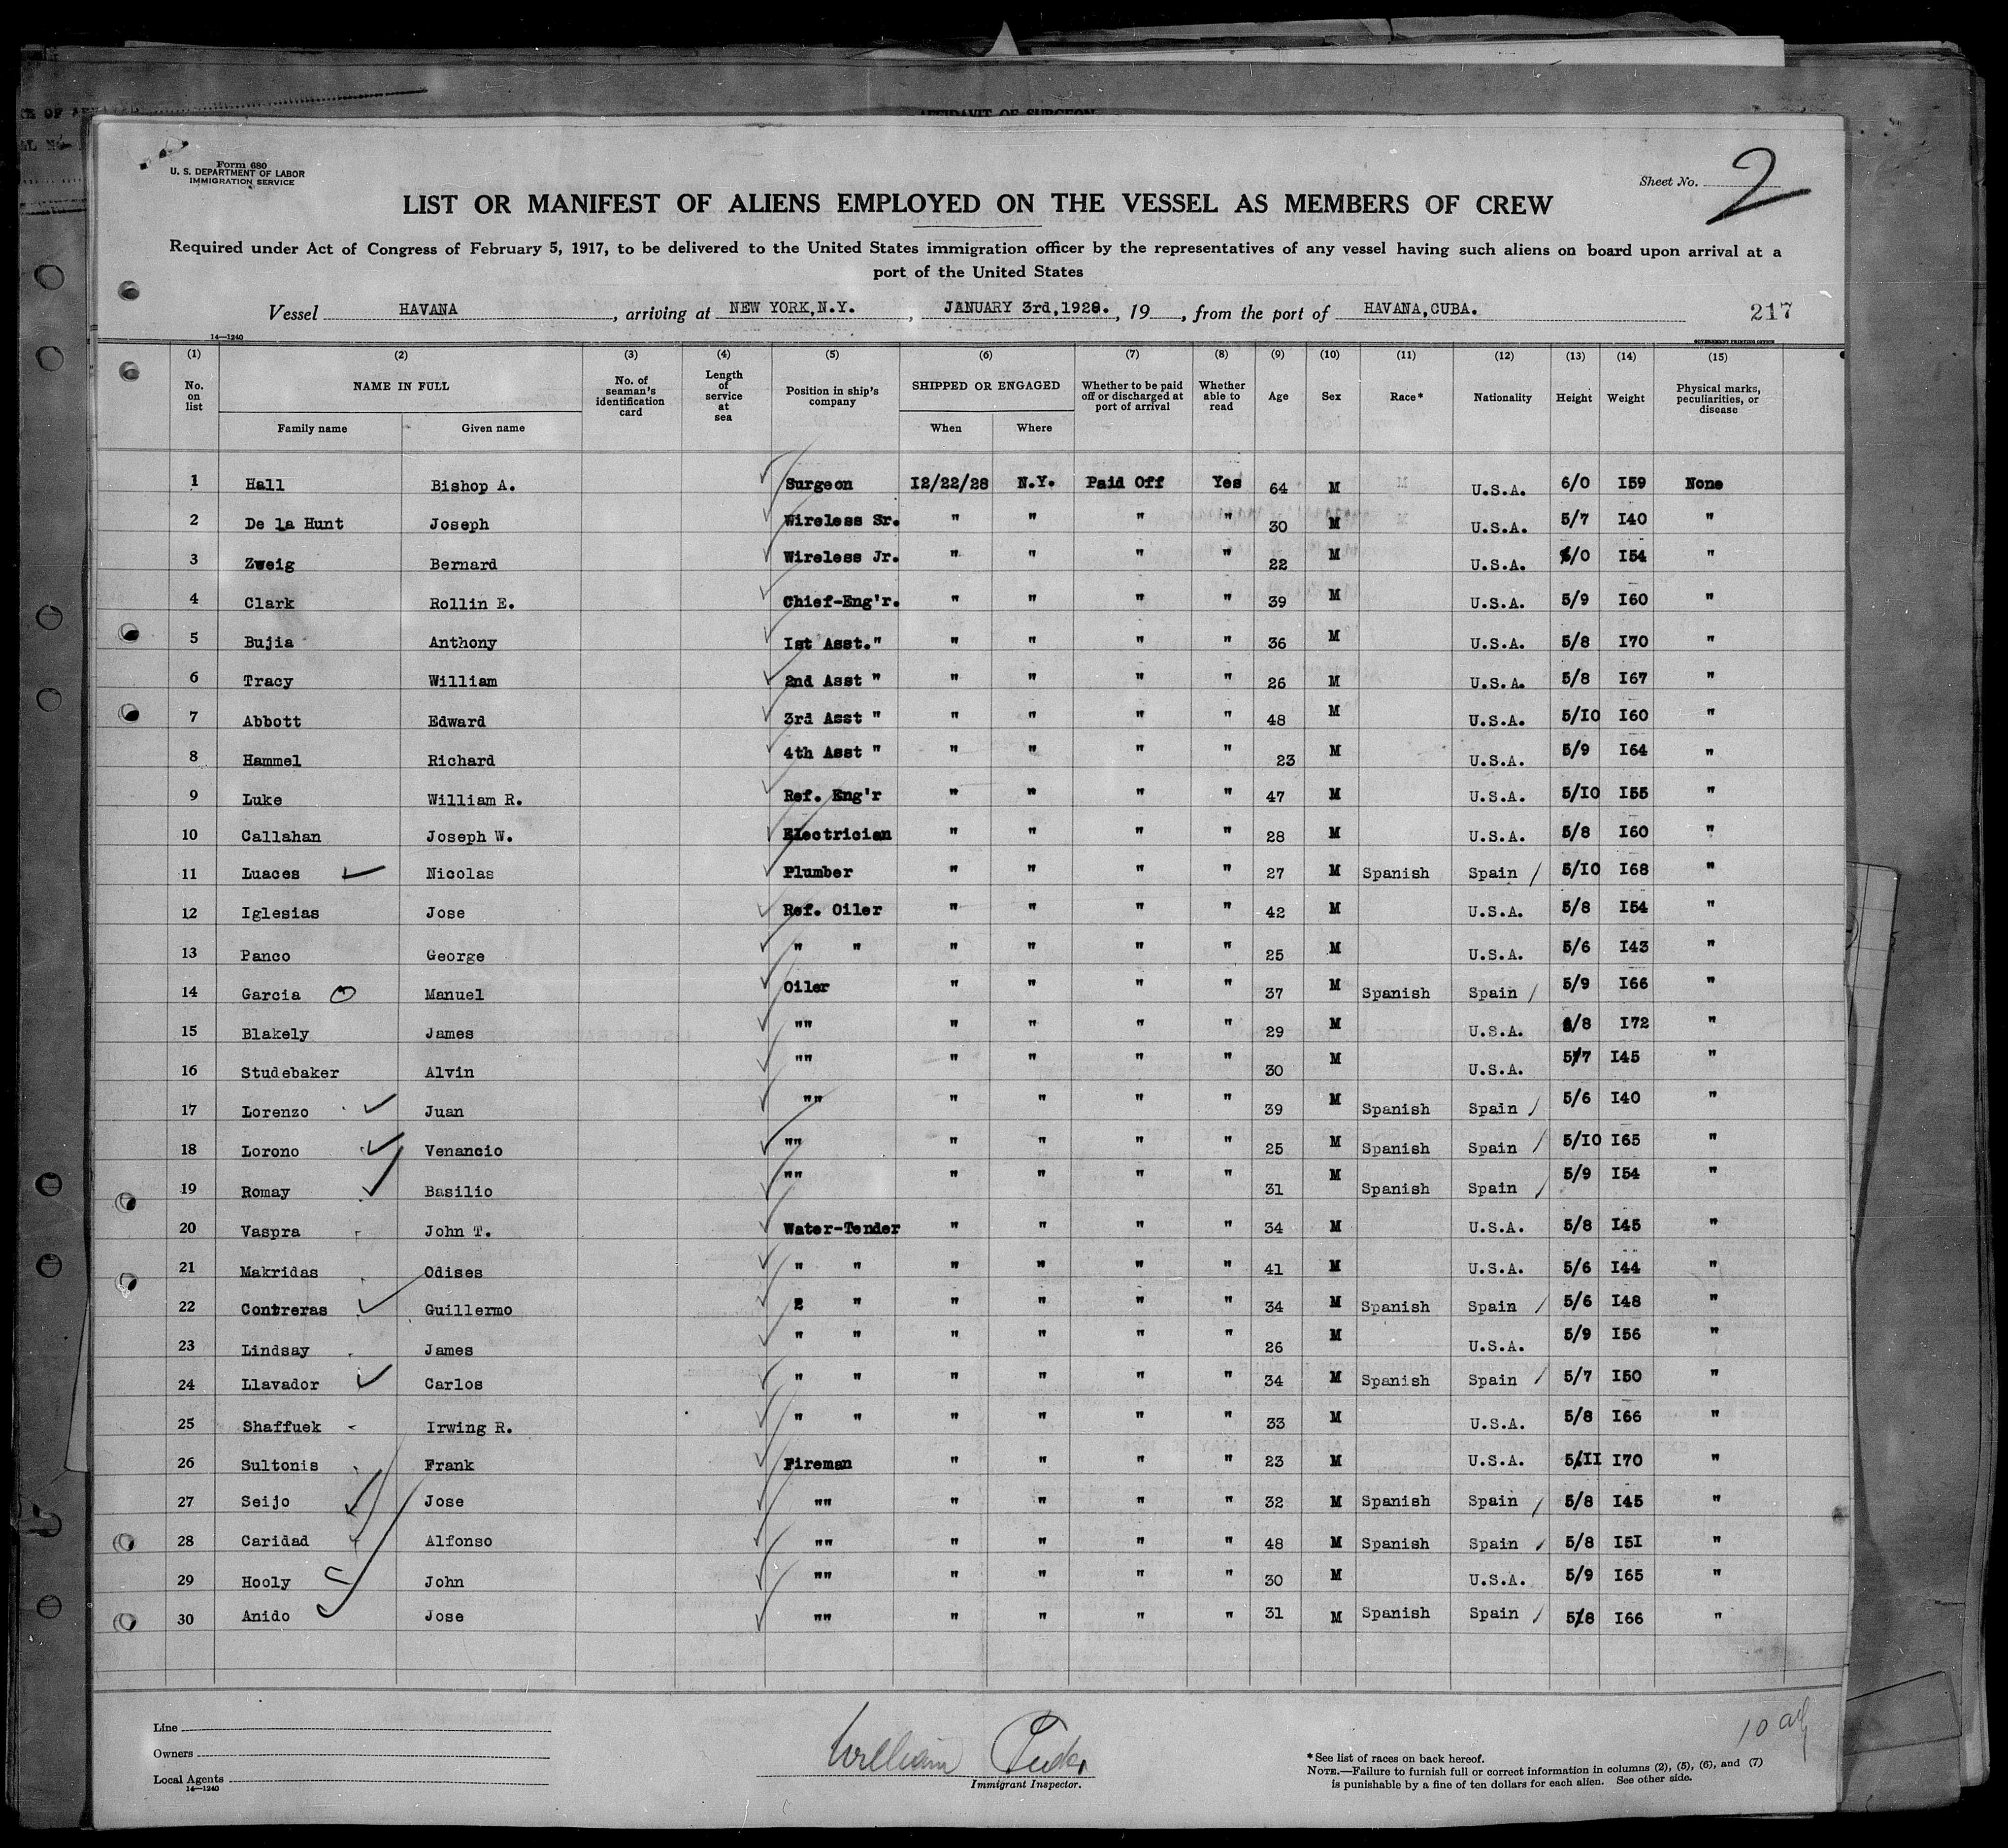 AFFIDAVIT OF SURGEON
Form 680
U. S. DEPARTMENT OF LABOR
IMMIGRATION SERVICE
Sheet No. 2
LIST OR MANIFEST OF ALIENS EMPLOYED ON THE VESSEL AS MEMBERS OF CREW
Required under Act of Congress of February 5, 1917, to be delivered to the United States immigration officer by the representatives of any vessel having such aliens on board upon arrival at a
port of the United States
Vessel HAVANA, arriving at NEW YORK,N.Y., JANUARY 3rd,1928., 19, from the port of HAVANA,CUBA. 217
14—1240 GOVERNMENT PRINTING OFFICE
(1) (2) (3) (4) (5) (6) (7) (8) (9) (10) (11) (12) (13) (14) (15)
No. on list NAME IN FULL No. of seaman's identification card Length of service at sea Position in ship's company SHIPPED OR ENGAGED Whether to be paid off or discharged at port of arrival Whether able to read Age Sex Race* Nationality Height Weight Physical marks, peculiarities, or disease
Family name Given name When Where
1 Hall Bishop A. Surgeon I2/22/28 N.Y. Paid Off Yes 64 M U.S.A. 6/0 I59 None
2 De la Hunt Joseph Wireless Sr. " " " " 30 M U.S.A. 5/7 I40 "
3 Zweig Bernard Wireless Jr. " " " " 22 M U.S.A. 6/0 I54 "
4 Clark Rollin E. Chief-Eng'r. " " " " 39 M U.S.A. 5/9 I60 "
5 Bujia Anthony Ist Asst." " " " " 36 M U.S.A. 5/8 I70 "
6 Tracy William 2nd Asst " " " " " 26 M U.S.A. 5/8 I67 "
7 Abbott Edward 3rd Asst " " " " " 48 M U.S.A. 5/IO I60 "
8 Hammel Richard 4th Asst " " " " " 23 M U.S.A. 5/9 I64 "
9 Luke William R. Ref. Eng'r " " " " 47 M U.S.A. 5/IO I55 "
10 Callahan Joseph W. Electrician " " " " 28 M U.S.A. 5/8 I60 "
11 Luaces Nicolas Plumber " " " " 27 M Spanish Spain 5/IO I68 "
12 Iglesias Jose Ref. Oiler " " " " 42 M U.S.A. 5/8 I54 "
13 Panco George " " " " " " 25 M U.S.A. 5/6 I43 "
14 Garcia Manuel Oiler " " " " 37 M Spanish Spain 5/9 I66 "
15 Blakely James "" " " " " 29 M U.S.A. /8 I72 "
16 Studebaker Alvin "" " " " " 30 M U.S.A. 5/7 I45 "
17 Lorenzo Juan "" " " " " 39 M Spanish Spain 5/6 I40 "
18 Lorono Venancio "" " " " " 25 M Spanish Spain 5/IO I65 "
19 Romay Basilio "" " " " " 31 M Spanish Spain 5/9 I54 "
20 Vaspra John T. Water-Tender " " " " 34 M U.S.A. 5/8 I45 "
21 Makridas Odises " " " " " " 41 M U.S.A. 5/6 I44 "
22 Contreras Guillermo 2 " " " " " 34 M Spanish Spain 5/6 I48 "
23 Lindsay James " " " " " " 26 M U.S.A. 5/9 I56 "
24 Llavador Carlos " " " " " " 34 M Spanish Spain 5/7 I50 "
25 Shaffuek Irwing R. " " " " " " 33 M U.S.A. 5/8 I66 "
26 Sultonis Frank Fireman " " " " 23 M U.S.A. 5/II I70 "
27 Seijo Jose "" " " " " 32 M Spanish Spain 5/8 I45 "
28 Caridad Alfonso "" " " " " 48 M Spanish Spain 5/8 I5I "
29 Hooly John "" " " " " 30 M U.S.A. 5/9 I65 "
30 Anido Jose "" " " " " 31 M Spanish Spain 5/8 I66 "
Line
Owners
Local Agents
14—1240
William
Immigrant Inspector.
10
* See list of races on back hereof.
NOTE.—Failure to furnish full or correct information in columns (2), (5), (6), and (7)
is punishable by a fine of ten dollars for each alien. See other side.